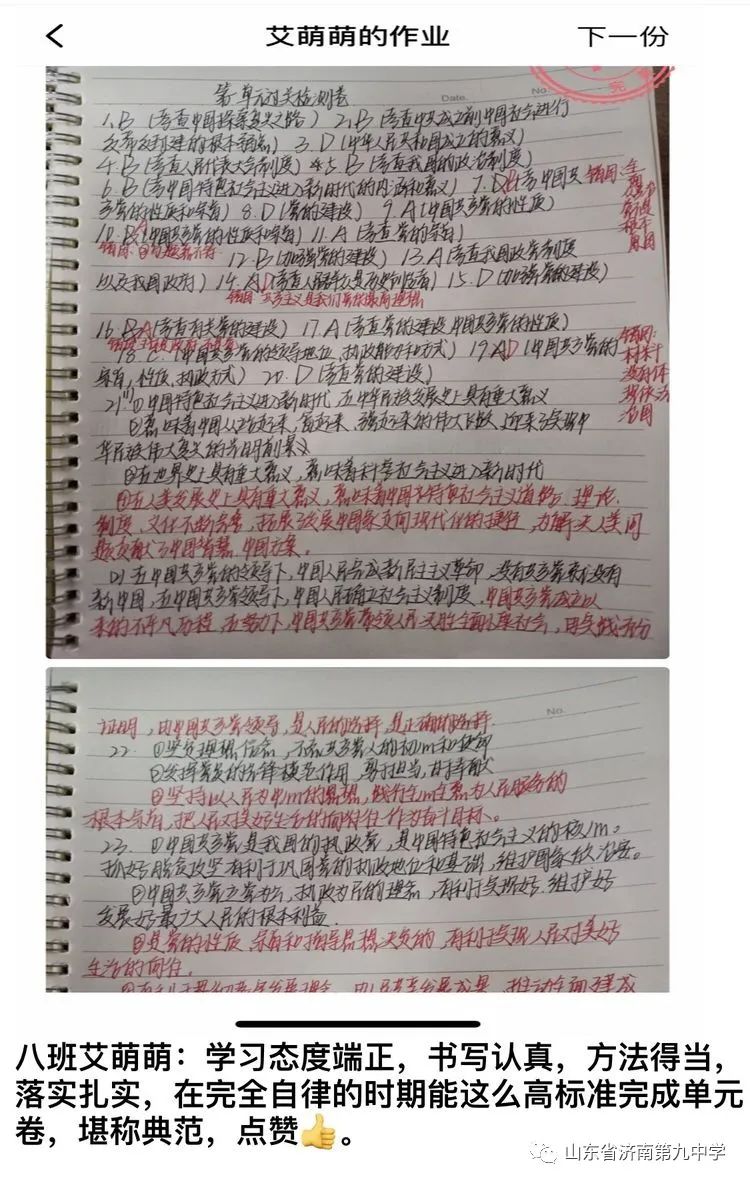 艾萌萌的作业
下一份
第一单元过关检测卷
Date.
No.
完
1、B（考查中国探索复兴之路） 2、B（考查中共成立前中国社会进行
反帝反封建的根本 3、D（中华人民共和国成立的意义）
4、B（考查人民代表大会制度） 5、B（考查我国的政治制度）
6、B（考中国特色社会主义进入新时代的内涵和意义） 7、DB（考中国共
产党的性质和宗旨） 8、D（党的建设） 9、A（中国共产党的性质）
错因：
10、BA（中国共产党的性质和宗旨） 11、A（考查党的宗旨）
12、B（加强党的建设） 13、A（考查我国政党制度
以及我国政府） 14、AD（考查人民群众是历史创造者） 15、D（加强党的建设）
错因：共产主义是我们党的最高理想
16、BA（考查有关党的建设） 17、A（考查党的建设 中国共产党的性质）
18、C（中国共产党的领导地位、执政能力和方式） 19、AD（中国共产党的
宗旨，性质，执政方式） 20、D（考查党的建设）
错因：材料中没有体现依法治国
21、(1)①中国特色社会主义进入新时代，在中华民族发展史上具有重大意义
①意味着中国从站起来，富起来，强起来的伟大飞跃，迎来了实现中
华民族伟大复兴的光明前景
②在世界史上具有重大意义，意味着科学社会主义进入新时代
③在人类发展史上具有重大意义，意味着中国特色社会主义道路、理论、
制度、文化不断发展，拓展了发展中国家走向现代化的途径，为解决人类问
题贡献了中国智慧、中国方案。
(2)在中国共产党的领导下，中国人民完成新民主主义革命，没有共产党就没有
新中国，在中国共产党领导下，中国人民确立社会主义制度，中国共产党成立以
来的不平凡历程，在努力下，中国共产党带领人民决胜全面小康社会，用实践充分
No.
证明，由中国共产党领导，是人民的选择，是正确的选择。
22、①坚定理想信念，不忘共产党人的初心和使命
②发挥党员的先锋模范作用，勇于担当，甘于奉献
③坚持以人民为中心的思想，践行全心全意为人民服务的
根本宗旨，把人民对美好生活的向往作为奋斗目标。
23、①中国共产党是我国的执政党，是中国特色社会主义的核心。
抓好脱贫攻坚有利于巩固党的执政地位和基础，维护国家长久治安。
②中国共产党立党为公，执政为民的理念，有利于实现好、维护好
发展好最广大人民的根本利益
③是党的性质、宗旨和指导思想决定的，有利于实现人民对美好
生活的向往。
八班艾萌萌：学习态度端正，书写认真，方法得当，
落实扎实，在完全自律的时期能这么高标准完成单元
卷，堪称典范，点赞👍。
山东省济南第九中学